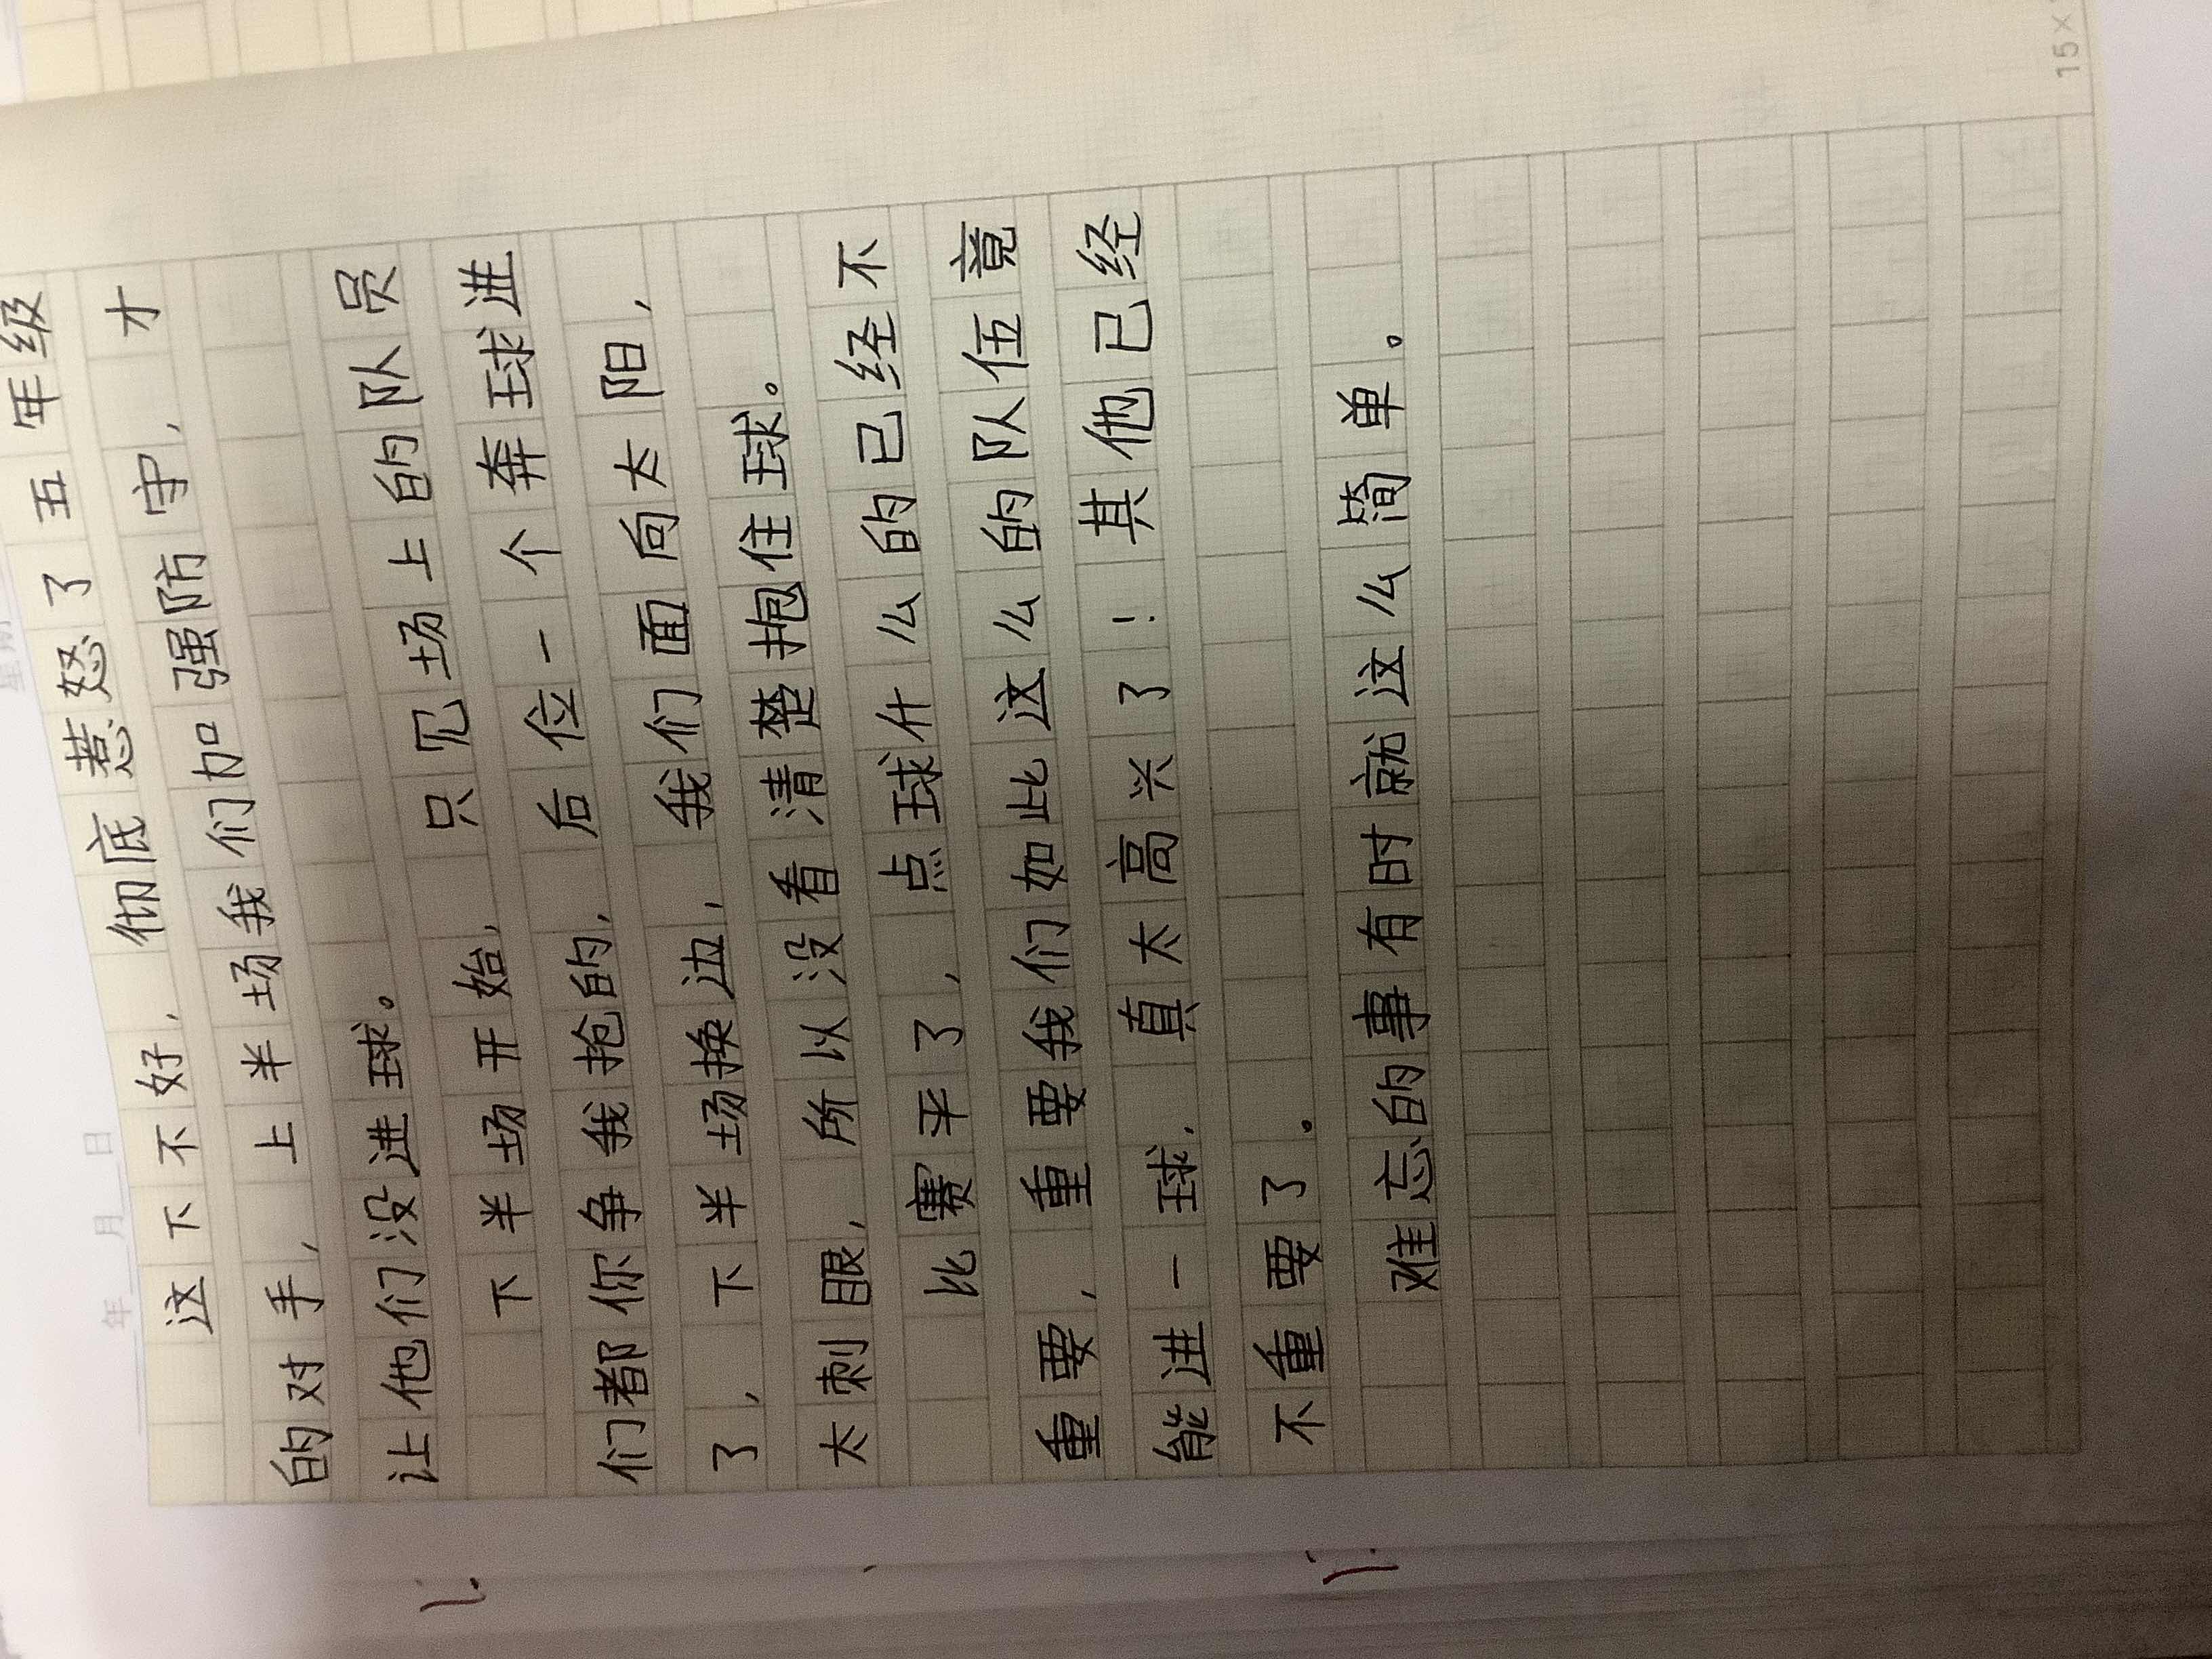 年 月 日 星期
这下不好，彻底惹怒了五年级
的对手，上半场我们加强防守，才
让他们没进球。
下半场开始，只见场上的队员
们都你争我抢的，后位一个奔球进
了，下半场换边，我们面向太阳，
太刺眼，所以没看清楚抱住球。
比赛平了，点球什么的已经不
重要，重要我们如此这么的队伍竟
能进一球，真太高兴了！其他已经
不重要了。
难忘的事有时就这么简单。
15×